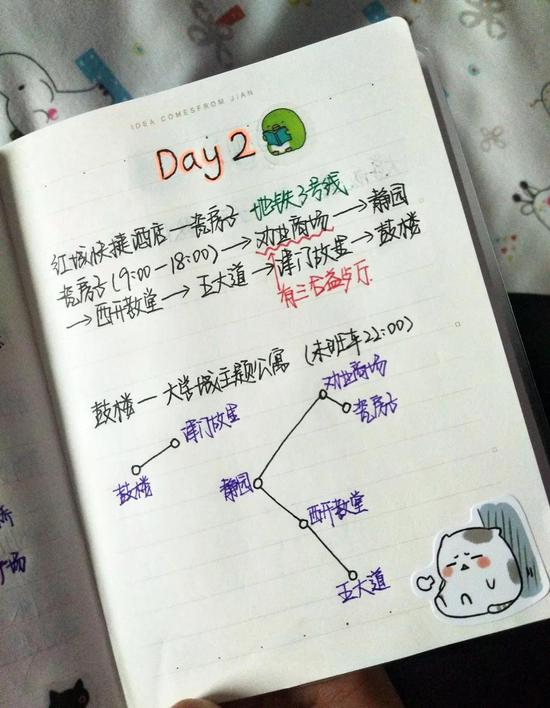 IDEA COMESFROM JIAN
Day 2
红城快捷酒店—瓷房子 地铁3号线
瓷房子(9:00-18:00)→劝业商场→静园
→西开教堂→五大道→津门故里→鼓楼
有三右益步厅
鼓楼—大学城主题公寓 (末班车22:00)
劝业商场
瓷房子
津门故里
鼓楼
静园
西开教堂
五大道
场